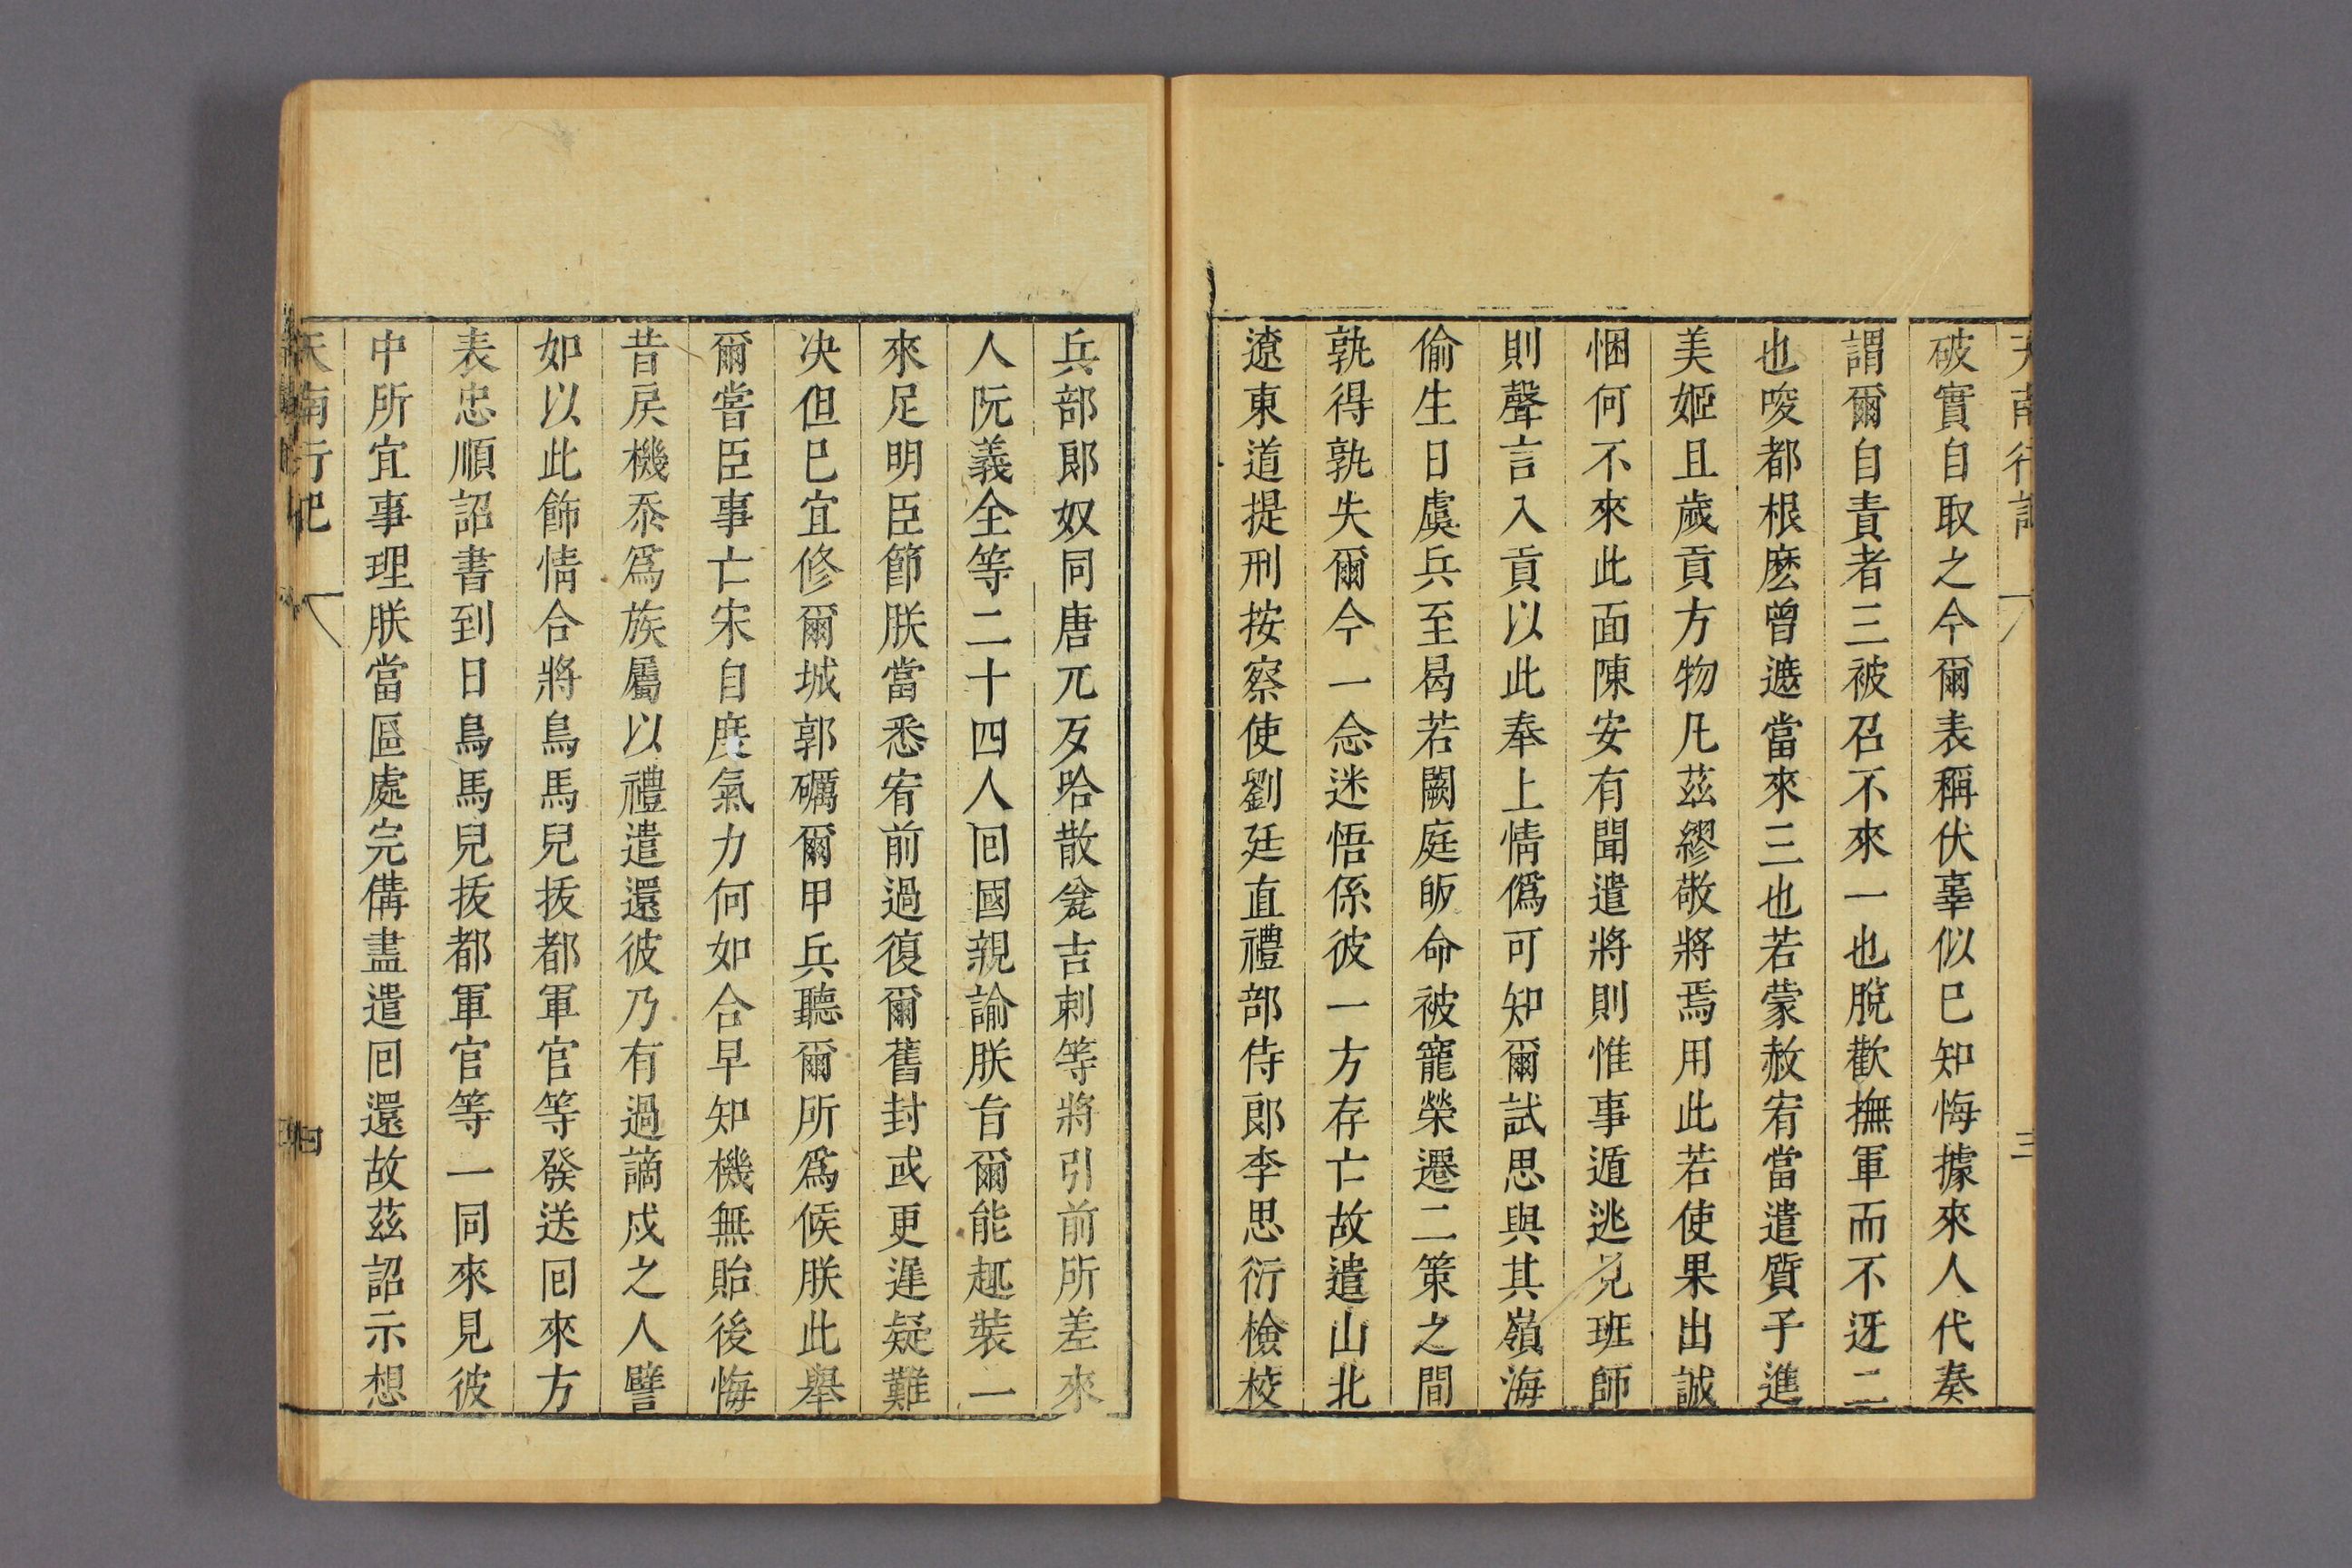 天南行記 三
破實自取之今爾表稱伏辜似已知悔據來人代奏
謂爾自責者三被召不來一也脫歡撫軍而不迓二
也唆都根麽曾遮當來三也若蒙赦宥當遣質子進
美姬且歲貢方物凡茲繆敬將焉用此若使果出誠
悃何不來此面陳安有聞遣將則惟事遁逃見班師
則聲言入貢以此奉上情僞可知爾試思與其嶺海
偷生日虞兵至曷若闕庭皈命被寵榮遷二策之間
孰得孰失爾今一念迷悟係彼一方存亡故遣山北
遼東道提刑按察使劉廷直禮部侍郎李思衍檢校
兵部郎奴同唐兀歹哈散瓮吉剌等將引前所差來
人阮義全等二十四人囘國親諭朕旨爾能趣裝一
來足明臣節朕當悉宥前過復爾舊封或更遲疑難
决但已宜修爾城郭礪爾甲兵聽爾所爲候朕此舉
爾嘗臣事亡宋自度氣力何如合早知機無貽後悔
昔戾機忝爲族屬以禮遣還彼乃有過謫戍之人譬
如以此飾情合將鳥馬兒拔都軍官等發送囘來方
表忠順詔書到日鳥馬兒拔都軍官等一同來見彼
中所宜事理朕當區處完備盡遣囘還故茲詔示想
天南行記 四